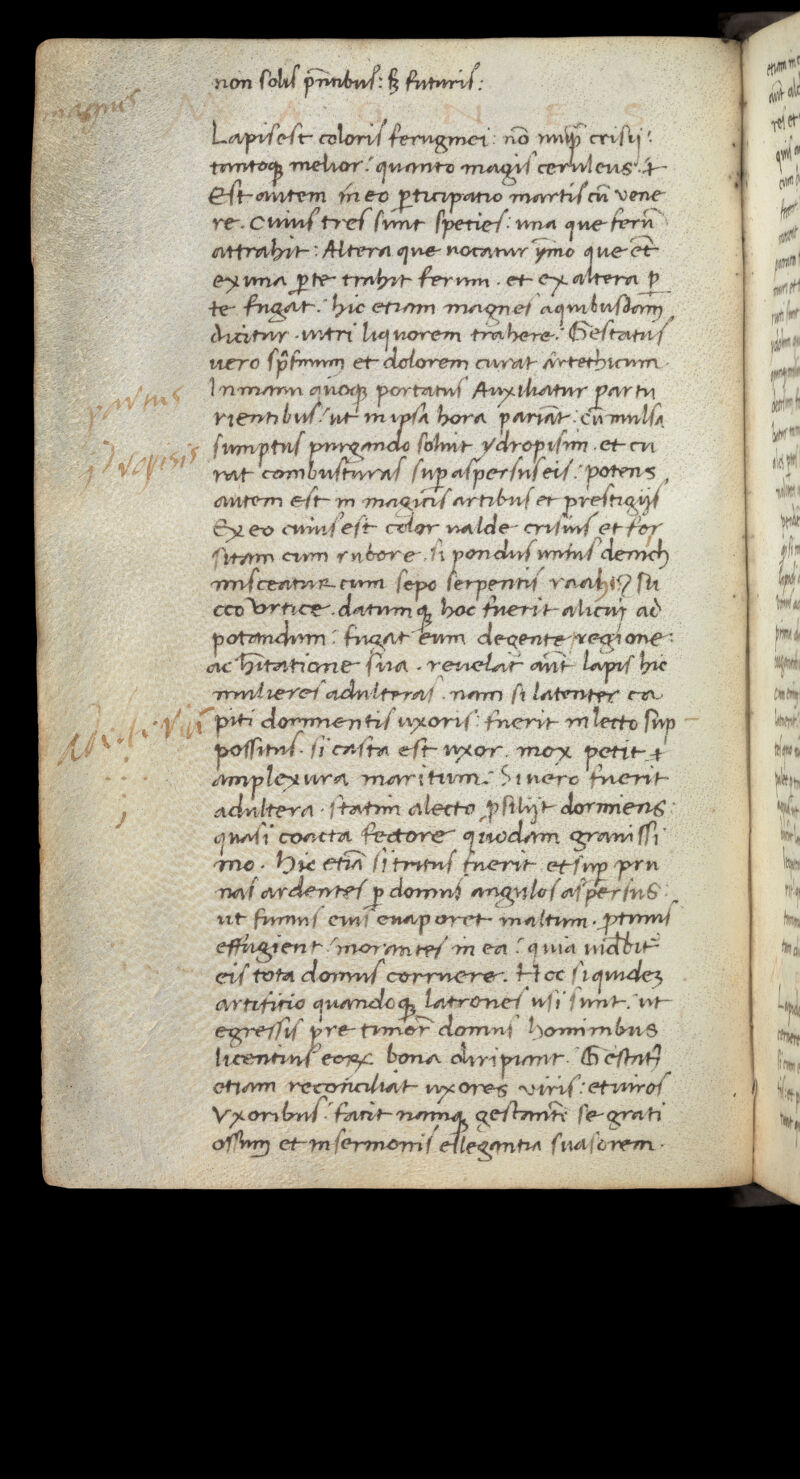 non solis p̄ntibus: sꝫ futuris:
magnus
M A G N E S
Lapis est coloris feruginei: nō nūqꝫ crisij:
tantoqꝫ melior: quanto magis ceruleus.
Est autem in eo ꝑticipatio martis cū vene
re. Cuius tres sunt speties: una que ferū
attrahit: Altera que uocatur ymo que et̄
ex una ꝑte trahit ferum. et ex altera ꝑ
te fugat. hic etiam magnes a quibusdam
dicitur. uitri liquorem trahere. Gestatus
uero et dolorem curat artethicum.
In manu quoqꝫ portatus Auxiliatur partu
partus
rientibus: ut in ipsa hora pariāt: cū mulsa
sumptus purgando soluit ydropisim. et cu
ydropisis
rat combusturas suꝑ aspersus eis: potens
autem est in magicis artibus et prestigijs
Ex eo cuius est color ualde crisius et for
sitam cum rubore. si pondus unius denich
misceatur cum sepo serpentis su
cco Vrtice. datumqꝫ hoc fuerit alicui ad
potandum: fugat eum degente regione:
ac hītatione sua. reuelat aūt lapis hic
mulieres adulteras. nam si latenter ca
piti dormientis uxoris: fuerit in lecto sup
possitus. si casta est uxor. mox petit
amplexura maritum: Si uero fuerit
adultera. statim a lecto ꝓsilijt dormiens:
quasi coacta fectore quodam grauissi
mo. Hic etiā si tritus fuerit et suꝑ pru
nas ardentes ꝑ domus angulos aspersus:
ut fumus eius euaporet in altum. ꝓtinus
effugient morantes in ea: quia
eis tota domus corruere. Hoc siquidez
artifitio quandoqꝫ latrones usi sunt. ut
egressis pre timore domus hominibus
licentius eorꝝ bona diripiant. Gestatꝰ
etiam reconciliat uxores viris: et uiros
Vxoribus: facit namqꝫ gestanti se grati
ossum et in sermonis ellegantia suasorem.